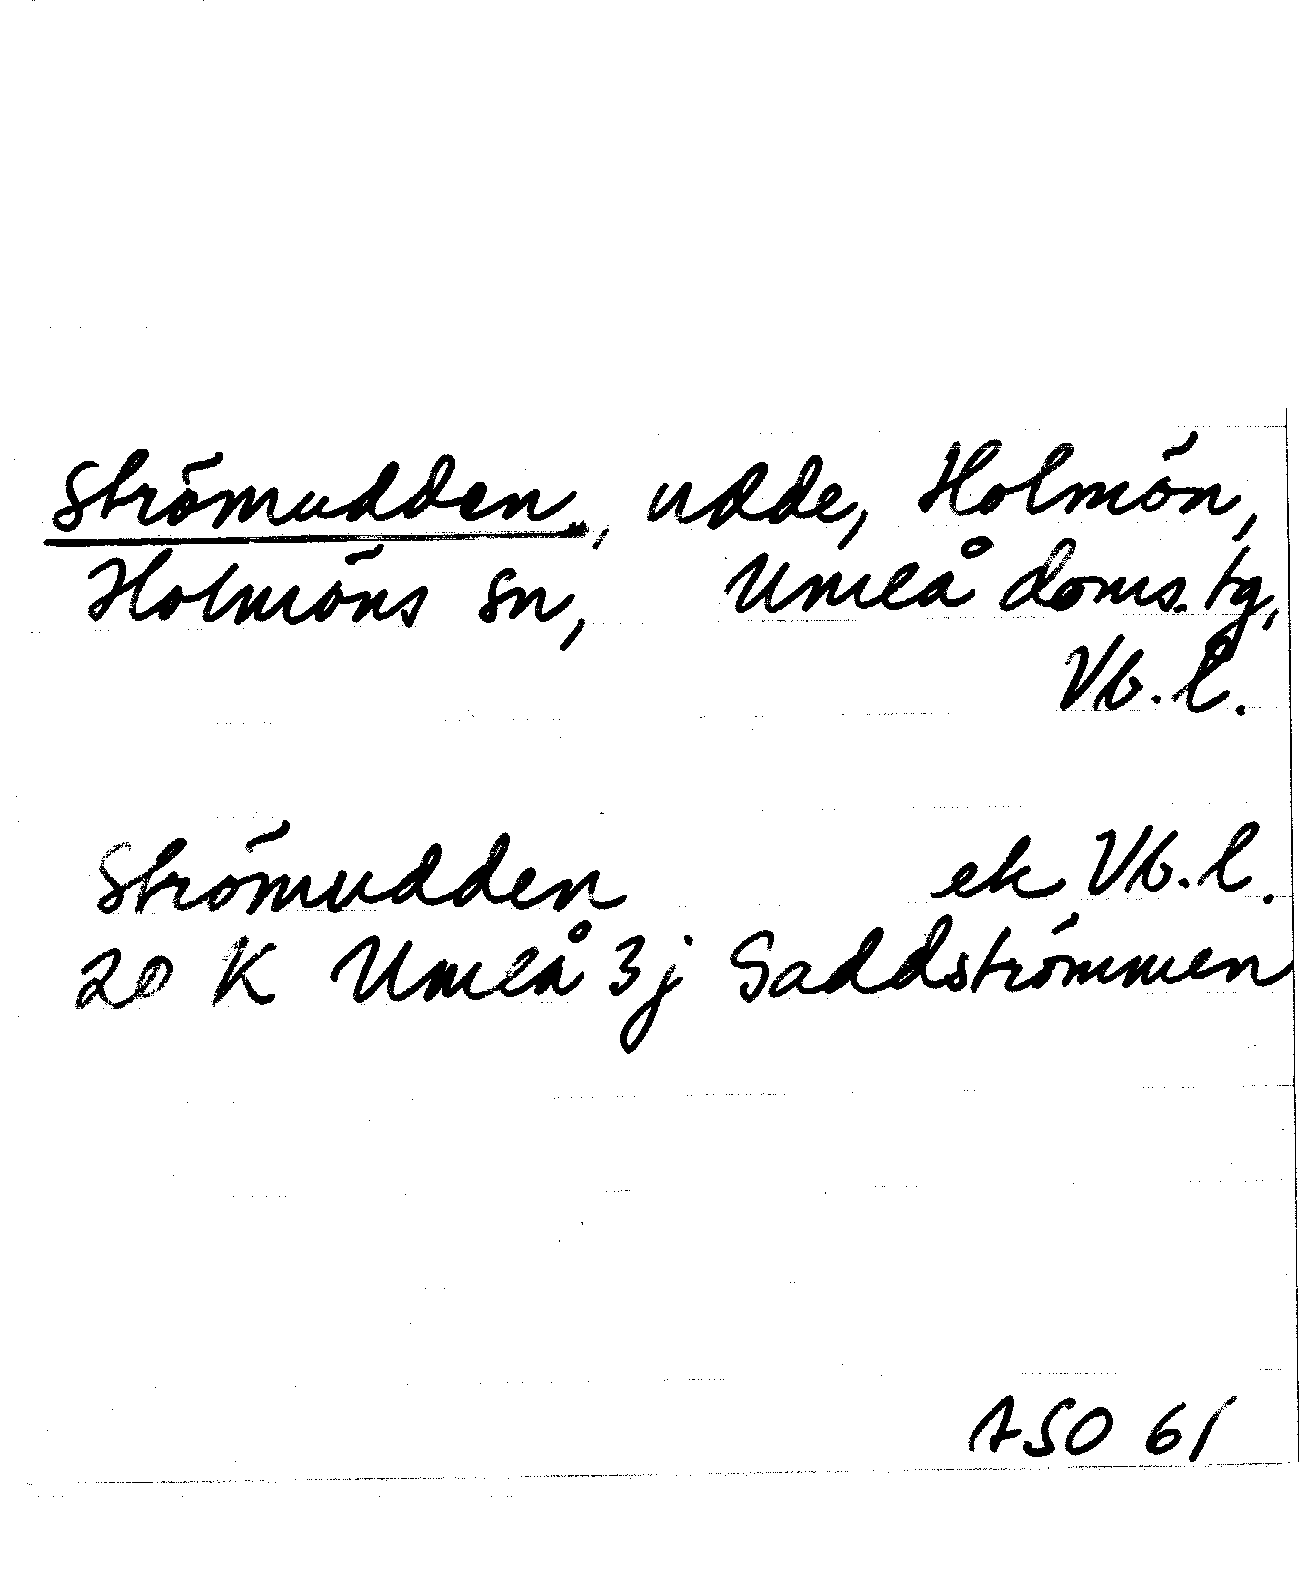 Strömudden, udde, Holmön,
Holmöns sn, Umeå doms. tg,
Vb. l.
Strömudden ek Vb. l.
20 K Umeå 3j Saddströmmen
ASO 61